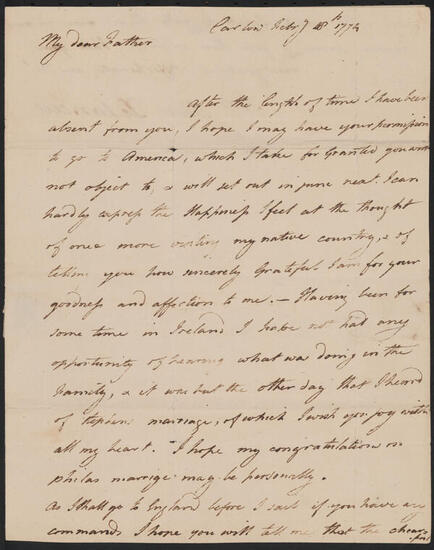 Carlow Feb.y 18th 1774
My dear Father
After the length of time I have been
absent from you, I hope I may have your permission
to go to America, which I take for granted you will
not object to, & will set out in June next. I can
hardly express the Happiness I feel at the thought
of once more visiting my native country, & of
telling you how sincerely Grateful I am for your
goodness and affection to me. — Having been for
some time in Ireland I have not had any
opportunity of hearing what was doing in the
Family, & it was but the other day that I heard
of Stephens marriage, of which I wish you joy with
all my heart. I hope my congratulation on
Philas marrige may be personally.
As I shall go to England before I sail if you have any
commands I hope you will tell me that the